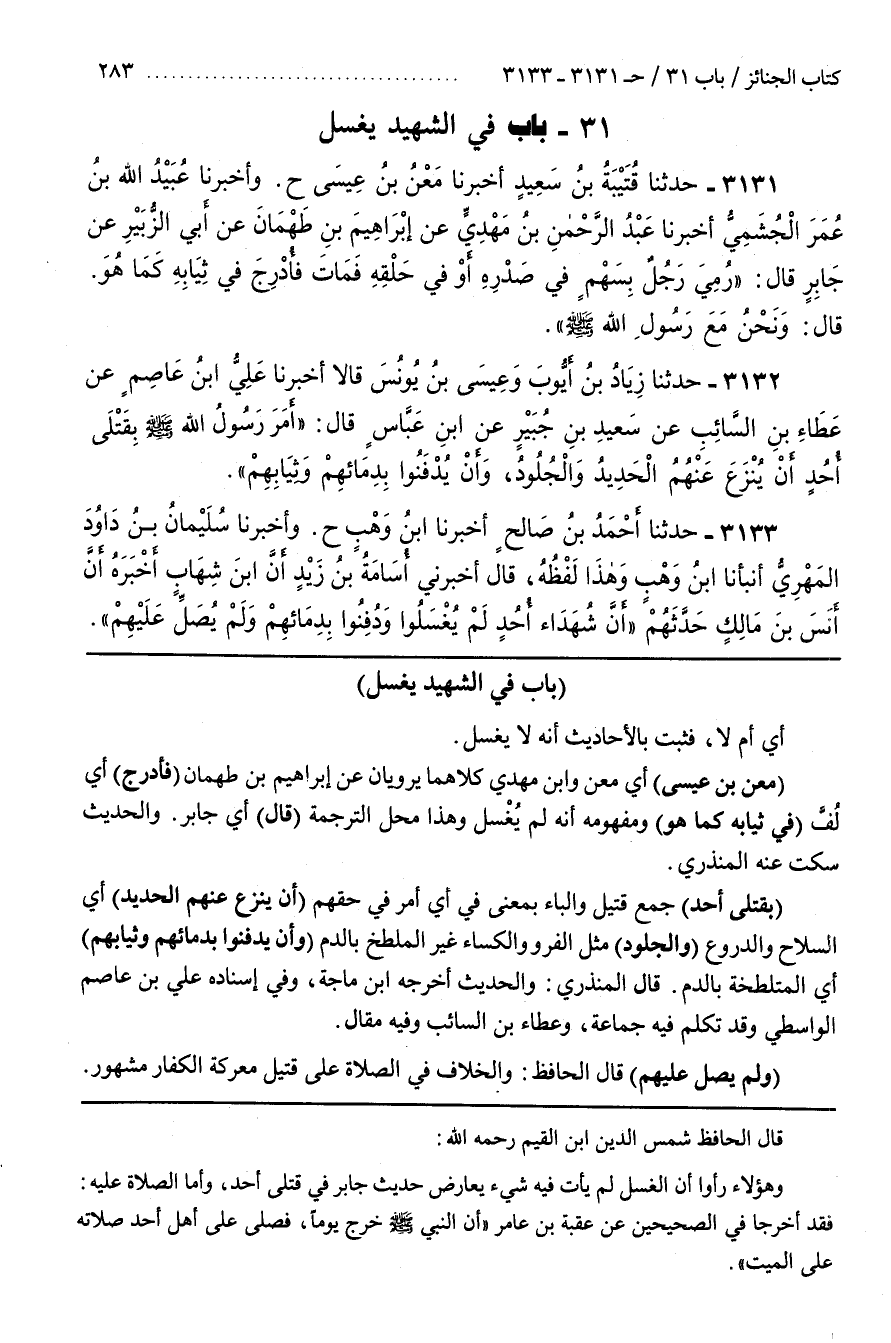 كتاب الجنائز / باب ٣١ / حـ ٣١٣١ ـ ٣١٣٣ ...................................... ٢٨٣
٣١ ـ باب في الشهيد يغسل
٣١٣١ ـ حدثنا قُتَيْبَةُ بنُ سَعِيدٍ أخبرنا مَعْنُ بنُ عِيسَى ح. وأخبرنا عُبَيْدُ الله بنُ
عُمَرَ الْجُشَمِيُّ أخبرنا عَبْدُ الرَّحْمٰنِ بنُ مَهْدِيٍّ عن إبْرَاهِيمَ بنِ طَهْمَانَ عن أبي الزُّبَيْرِ عن
جَابِرٍ قال: «رُمِيَ رَجُلٌ بِسَهْمٍ في صَدْرِهِ أَوْ في حَلْقِهِ فَمَاتَ فأُدْرِجَ في ثِيَابِهِ كَمَا هُوَ.
قال: وَنَحْنُ مَعَ رَسُولِ الله ﷺ».
٣١٣٢ ـ حدثنا زِيَادُ بنُ أَيُّوبَ وَعِيسَى بنُ يُونُسَ قالا أخبرنا عَلِيُّ ابنُ عَاصِمٍ عن
عَطَاءِ بنِ السَّائِبِ عن سَعيدِ بنِ جُبَيْرٍ عن ابنِ عَبَّاسٍ قال: «أَمَرَ رَسُولُ الله ﷺ بِقَتْلَى
أُحُدٍ أَنْ يُنْزَعَ عَنْهُمُ الْحَدِيدُ وَالْجُلُودُ، وَأَنْ يُدْفَنُوا بِدِمَائِهِمْ وَثِيَابِهِمْ».
٣١٣٣ ـ حدثنا أَحْمَدُ بنُ صَالحٍ أخبرنا ابنُ وَهْبٍ ح. وأخبرنا سُلَيْمانُ بـنُ دَاوُدَ
المَهْرِيُّ أنبأنا ابنُ وَهْبٍ وَهٰذَا لَفْظُهُ، قال أخبرني أُسَامَةُ بنُ زَيْدٍ أَنَّ ابنَ شِهَابٍ أَخْبَرَهُ أَنَّ
أَنَسَ بنَ مَالِكٍ حَدَّثَهُمْ «أَنَّ شُهَدَاء أُحُدٍ لَمْ يُغْسَلُوا وَدُفِنُوا بِدِمَائِهِمْ وَلَمْ يُصَلِّ عَلَيْهِمْ».
(باب في الشهيد يغسل)
أي أم لا، فثبت بالأحاديث أنه لا يغسل.
(معن بن عيسى) أي معن وابن مهدي كلاهما يرويان عن إبراهيم بن طهمان (فأدرج) أي
لُفَّ (في ثيابه كما هو) ومفهومه أنه لم يُغْسل وهذا محل الترجمة (قال) أي جابر. والحديث
سكت عنه المنذري.
(بقتلى أحد) جمع قتيل والباء بمعنى في أي أمر في حقهم (أن ينزع عنهم الحديد) أي
السلاح والدروع (والجلود) مثل الفرو والكساء غير الملطخ بالدم (وأن يدفنوا بدمائهم وثيابهم)
أي المتلطخة بالدم. قال المنذري: والحديث أخرجه ابن ماجة، وفي إسناده علي بن عاصم
الواسطي وقد تكلم فيه جماعة، وعطاء بن السائب وفيه مقال.
(ولم يصل عليهم) قال الحافظ: والخلاف في الصلاة على قتيل معركة الكفار مشهور.
قال الحافظ شمس الدين ابن القيم رحمه الله:
وهؤلاء رأوا أن الغسل لم يأت فيه شيء يعارض حديث جابر في قتلى أحد، وأما الصلاة عليه:
فقد أخرجا في الصحيحين عن عقبة بن عامر «أن النبي ﷺ خرج يوماً، فصلى على أهل أحد صلاته
على الميت».